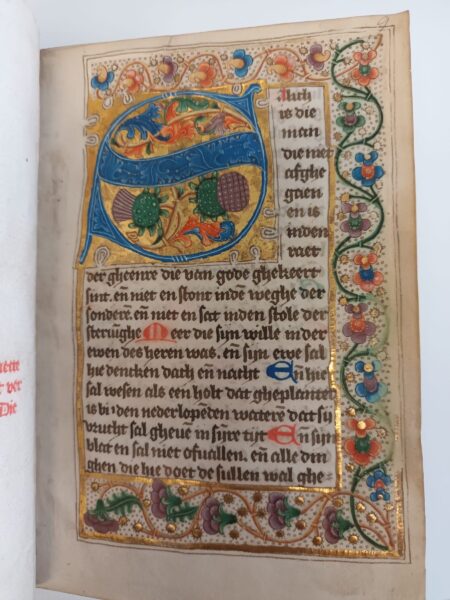 Salich
is die
man
die niet
afghe
gaen
en is
inden
raet
der gheenre die van gode ghekeert
sint. en̄ niet en stont indē weghe der
sonderē. en̄ niet en sat inden stole der
steruīghe Meer die sijn wille in der
ewen des heren was. en̄ sijn ewe sal
hie dencken dach en̄ nacht En̄ hie
sal wesen als een holt dat gheplantet
is bi den nederlopēden waterē dat sij
vrucht sal gheuē in sijre tijt En̄ sijn
blat en sal niet ofuallen. en̄ alle din
ghen die hie doet de sullen wal ghe=
t ver
Die